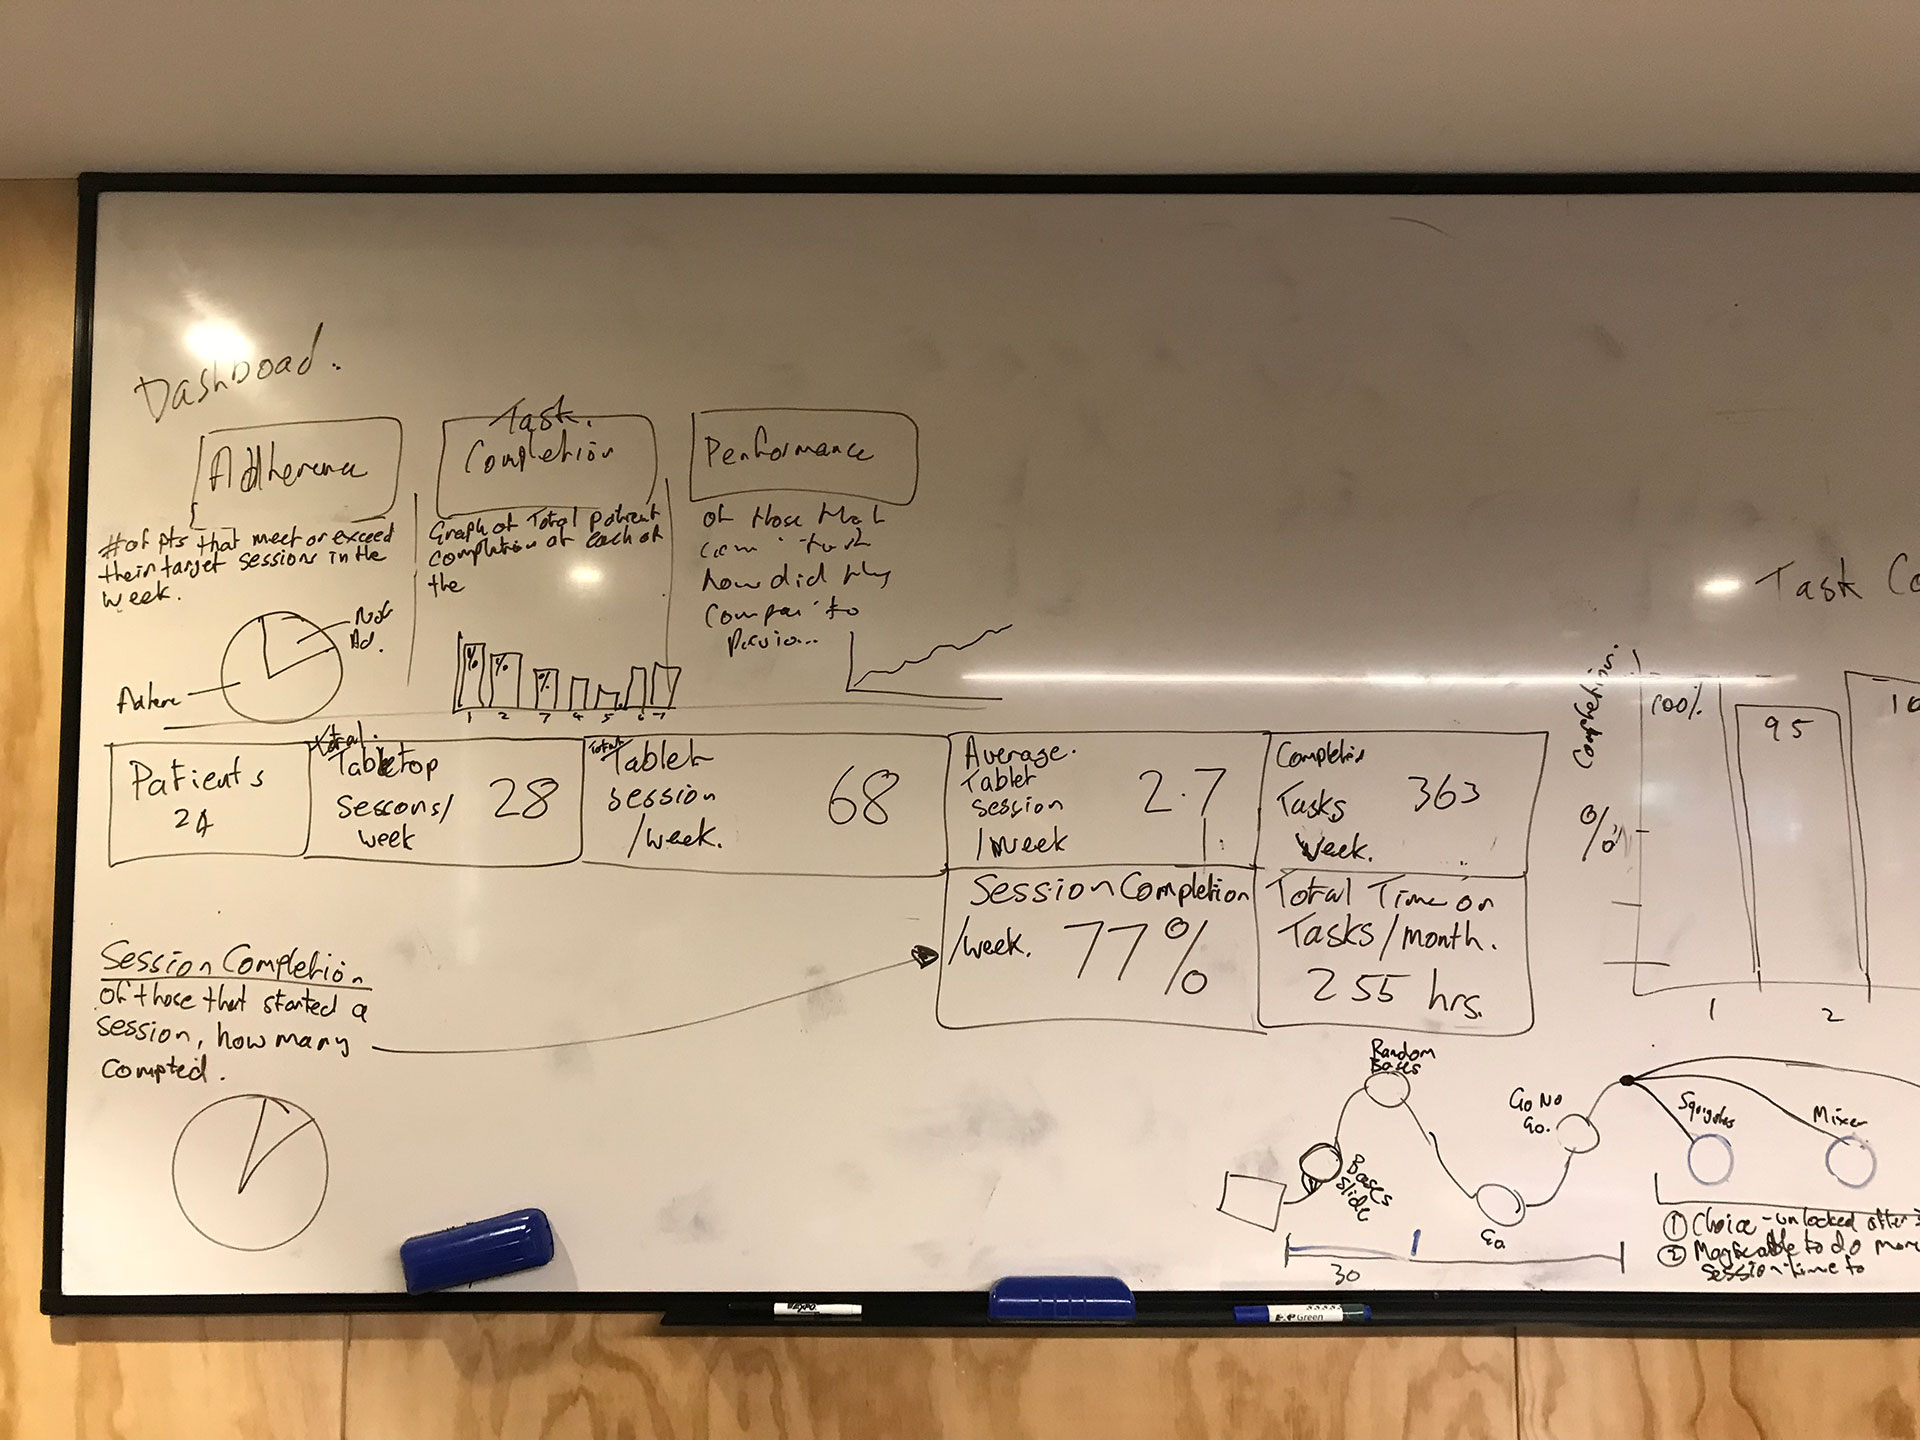 Dashboad.
Adherence
#of pts that meet or exceed
their target sessions in the
week.
Not
Ad.
Adhere
Task.
Completion
Graph of Total patient
completion of each of
the
%
%
%
1 2 3 4 5 6 7
Performance
of those that
how did they
to
Patients
24
Total.
Tabletop
sessons/
week
28
Total
Tablet
session
/week.
68
Average.
Tablet
session
/week
2.7
Tasks
week.
363
Session Completion
/week. 77%
Total Time on
Tasks/month.
255 hrs.
Session Completion
of those that started a
session, how many
compted.
Task Co
%
100%
95
10
1 2
Random
Bases
Bases
slide
Go No
Go.
Go
Mixer
30
① Choice - unlocked after
② able to do more
session time to
EXPO
Green